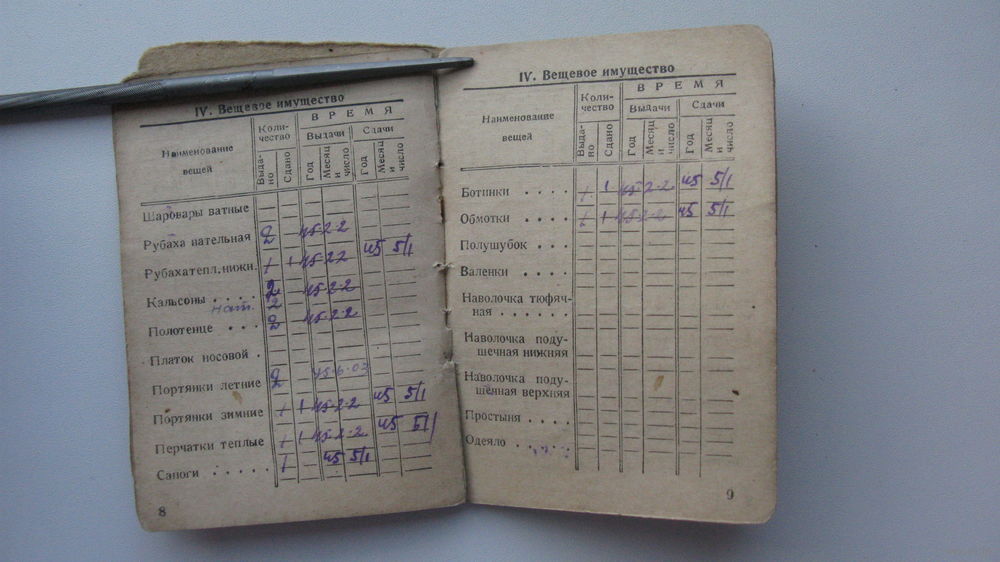 IV. Вещевое имущество
Наименование вещей
Коли-
чество
ВРЕМЯ
Выдачи
Сдачи
Выда-
но
Сдано
Год
Месяц и число
Год
Месяц и число
Шаровары ватные
Рубаха нательная 2 45 2-2
Рубаха тепл. нижн. 1 1 45 2 2 45 5/1
Кальсоны . . . . 2 45-2-2
нат. 2
Полотенце . . . 2 45-2-2
Платок носовой .
Портянки летние 2 45-6-03
Портянки зимние 1 1 45-2-2 45 5/1
Перчатки теплые 1 1 45-2-2 45 5/1
Сапоги . . . . . 1 45 5/1
8
IV. Вещевое имущество
Наименование
вещей
Коли-
чество
ВРЕМЯ
Выдачи
Сдачи
Выда-
но
Сдано
Год
Месяц и число
Год
Месяц и число
Ботинки . . . . 1 1 45-2-2 45 5/1
Обмотки . . . . 1 1 45-2-2 45 5/1
Полушубок . . .
Валенки . . . .
Наволочка тюфяч-
ная . . . . . .
Наволочка поду-
шечная нижняя
Наволочка поду-
шечная верхняя
Простыня . . . .
Одеяло . . . .
9